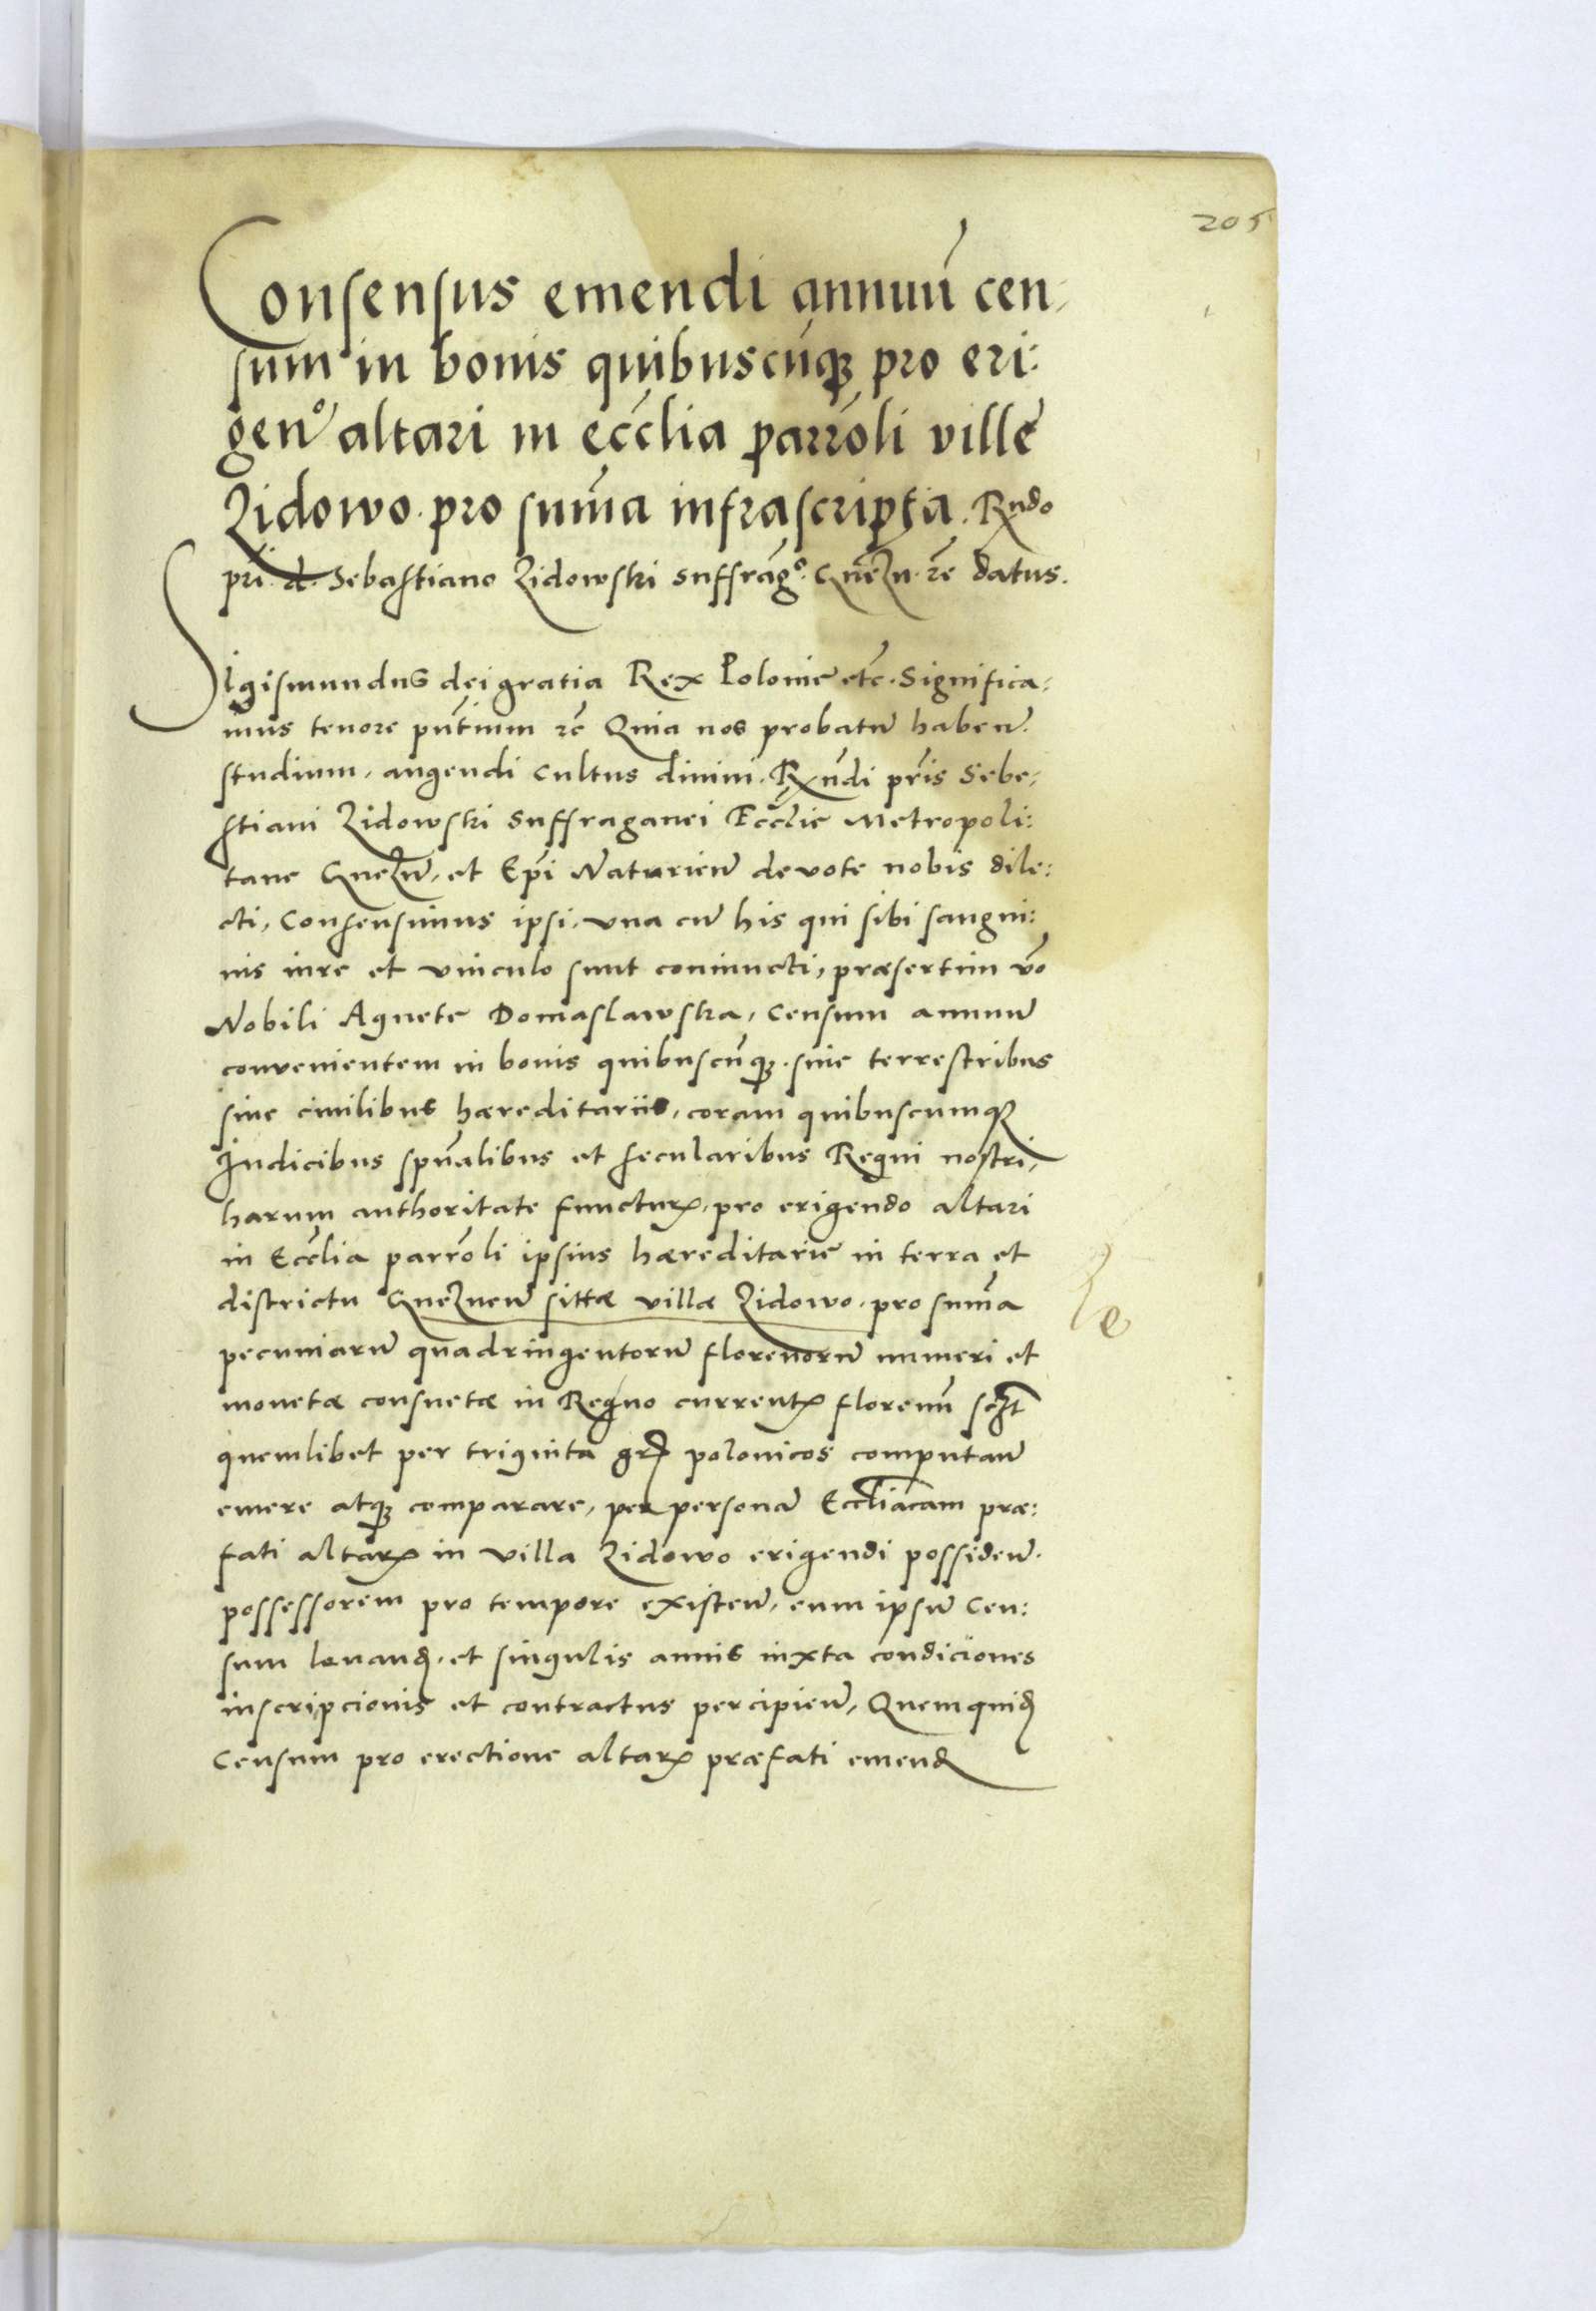 205
Consensus emendi annuū cen-
sum in bonis quibuscūqꝫ pro eri:
genº altari in ecclīa parrōli ville
Zidowo. pro sum̄a infrascripta. Rn̄do
pri. d. Sebastiano Zidowski suffrāgº. Gnēzn. rē datus.
Sigismundus dei gratia Rex Polonie etc̄. Significa:
mus tenore pn̄tium rc̄ Quia nos probatū habeñ.
studium, augendi cultus divini. Rn̄di pr̄is Seba,
stiani Zidowski suffraganei Ecclīe Metropoli:
tane Gneznē, et Ep̄i Naturieñ devote nobis dile:
cti, Consensimus ipsi, una cū his qui sibi sangui:
nis iure et vinculo sunt coniuncti, præsertim vō
Nobili Agnete Domaslawska, Censum annuū
convenientem in bonis quibuscūqꝫ. sive terrestribus
sive civilibus hæreditariis, coram quibuscumqꝫ
Iudicibus spūalibus et secularibus Regni nostri,
harum authoritate functurꝭ, pro erigendo altari
in Ecclīa parrōli ipsius hæreditarie in terra et
districtu Gnezneñ sittæ villæ Zidowo. pro sum̄a
pecuniarū quadringentorū florenorū numeri et
monetæ consuetæ in Regno currentꝭ florenū
quemlibet per triginta grꝭ polonicos computañ
emere atqꝫ comparare, per personā Eccliācam præ:
fati altarꝭ in villa Zidowo erigendi possideñ.
possessorem pro tempore existeñ, eum ipsū Cen:
sum levandꝭ. et singulis annis iuxta condiciones
inscripcionis et contractus percipieñ, Quemquidꝭ
Censum pro erectione altarꝭ præfati emendꝭ